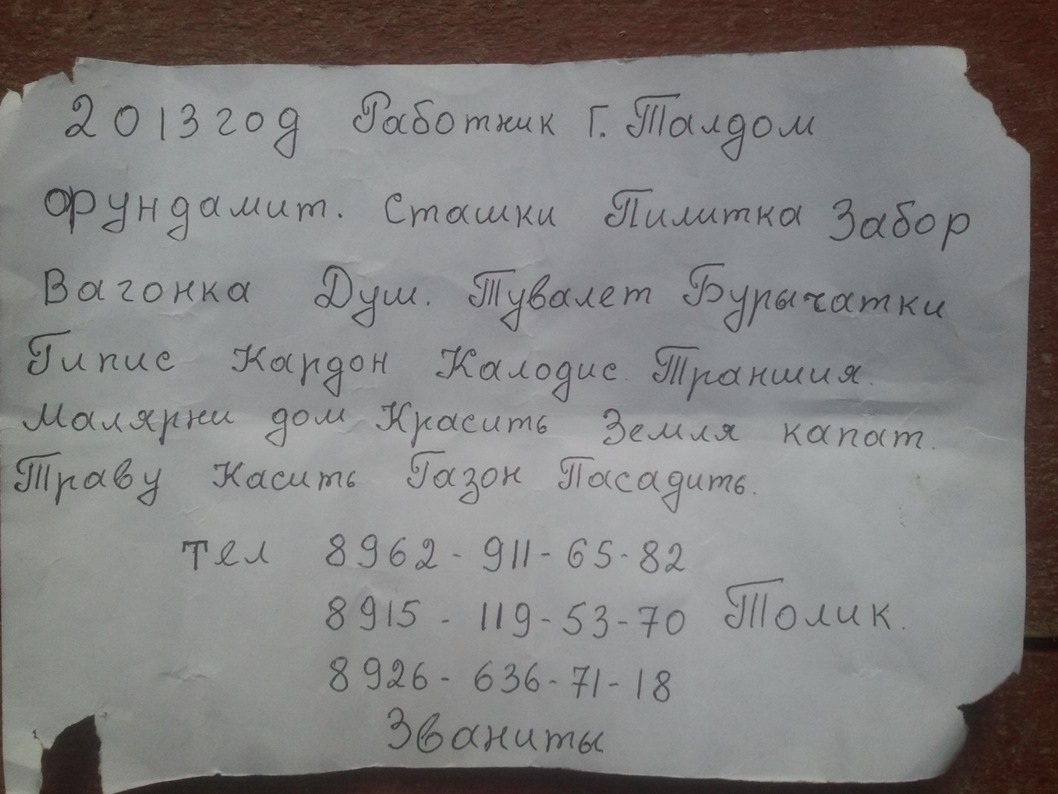 2013 год Работник Г. Талдом
Фрундамит. Сташки Пилитка Забор
Вагонка Душ. Тувалет Бурычатки
Гипис Кардон Калодис. Траншия.
Малярни дом Красить Земля капат.
Траву Касить Газон Пасадить.
тел 8962-911-65-82
8915-119-53-70 Толик.
8926-636-71-18
Званиты